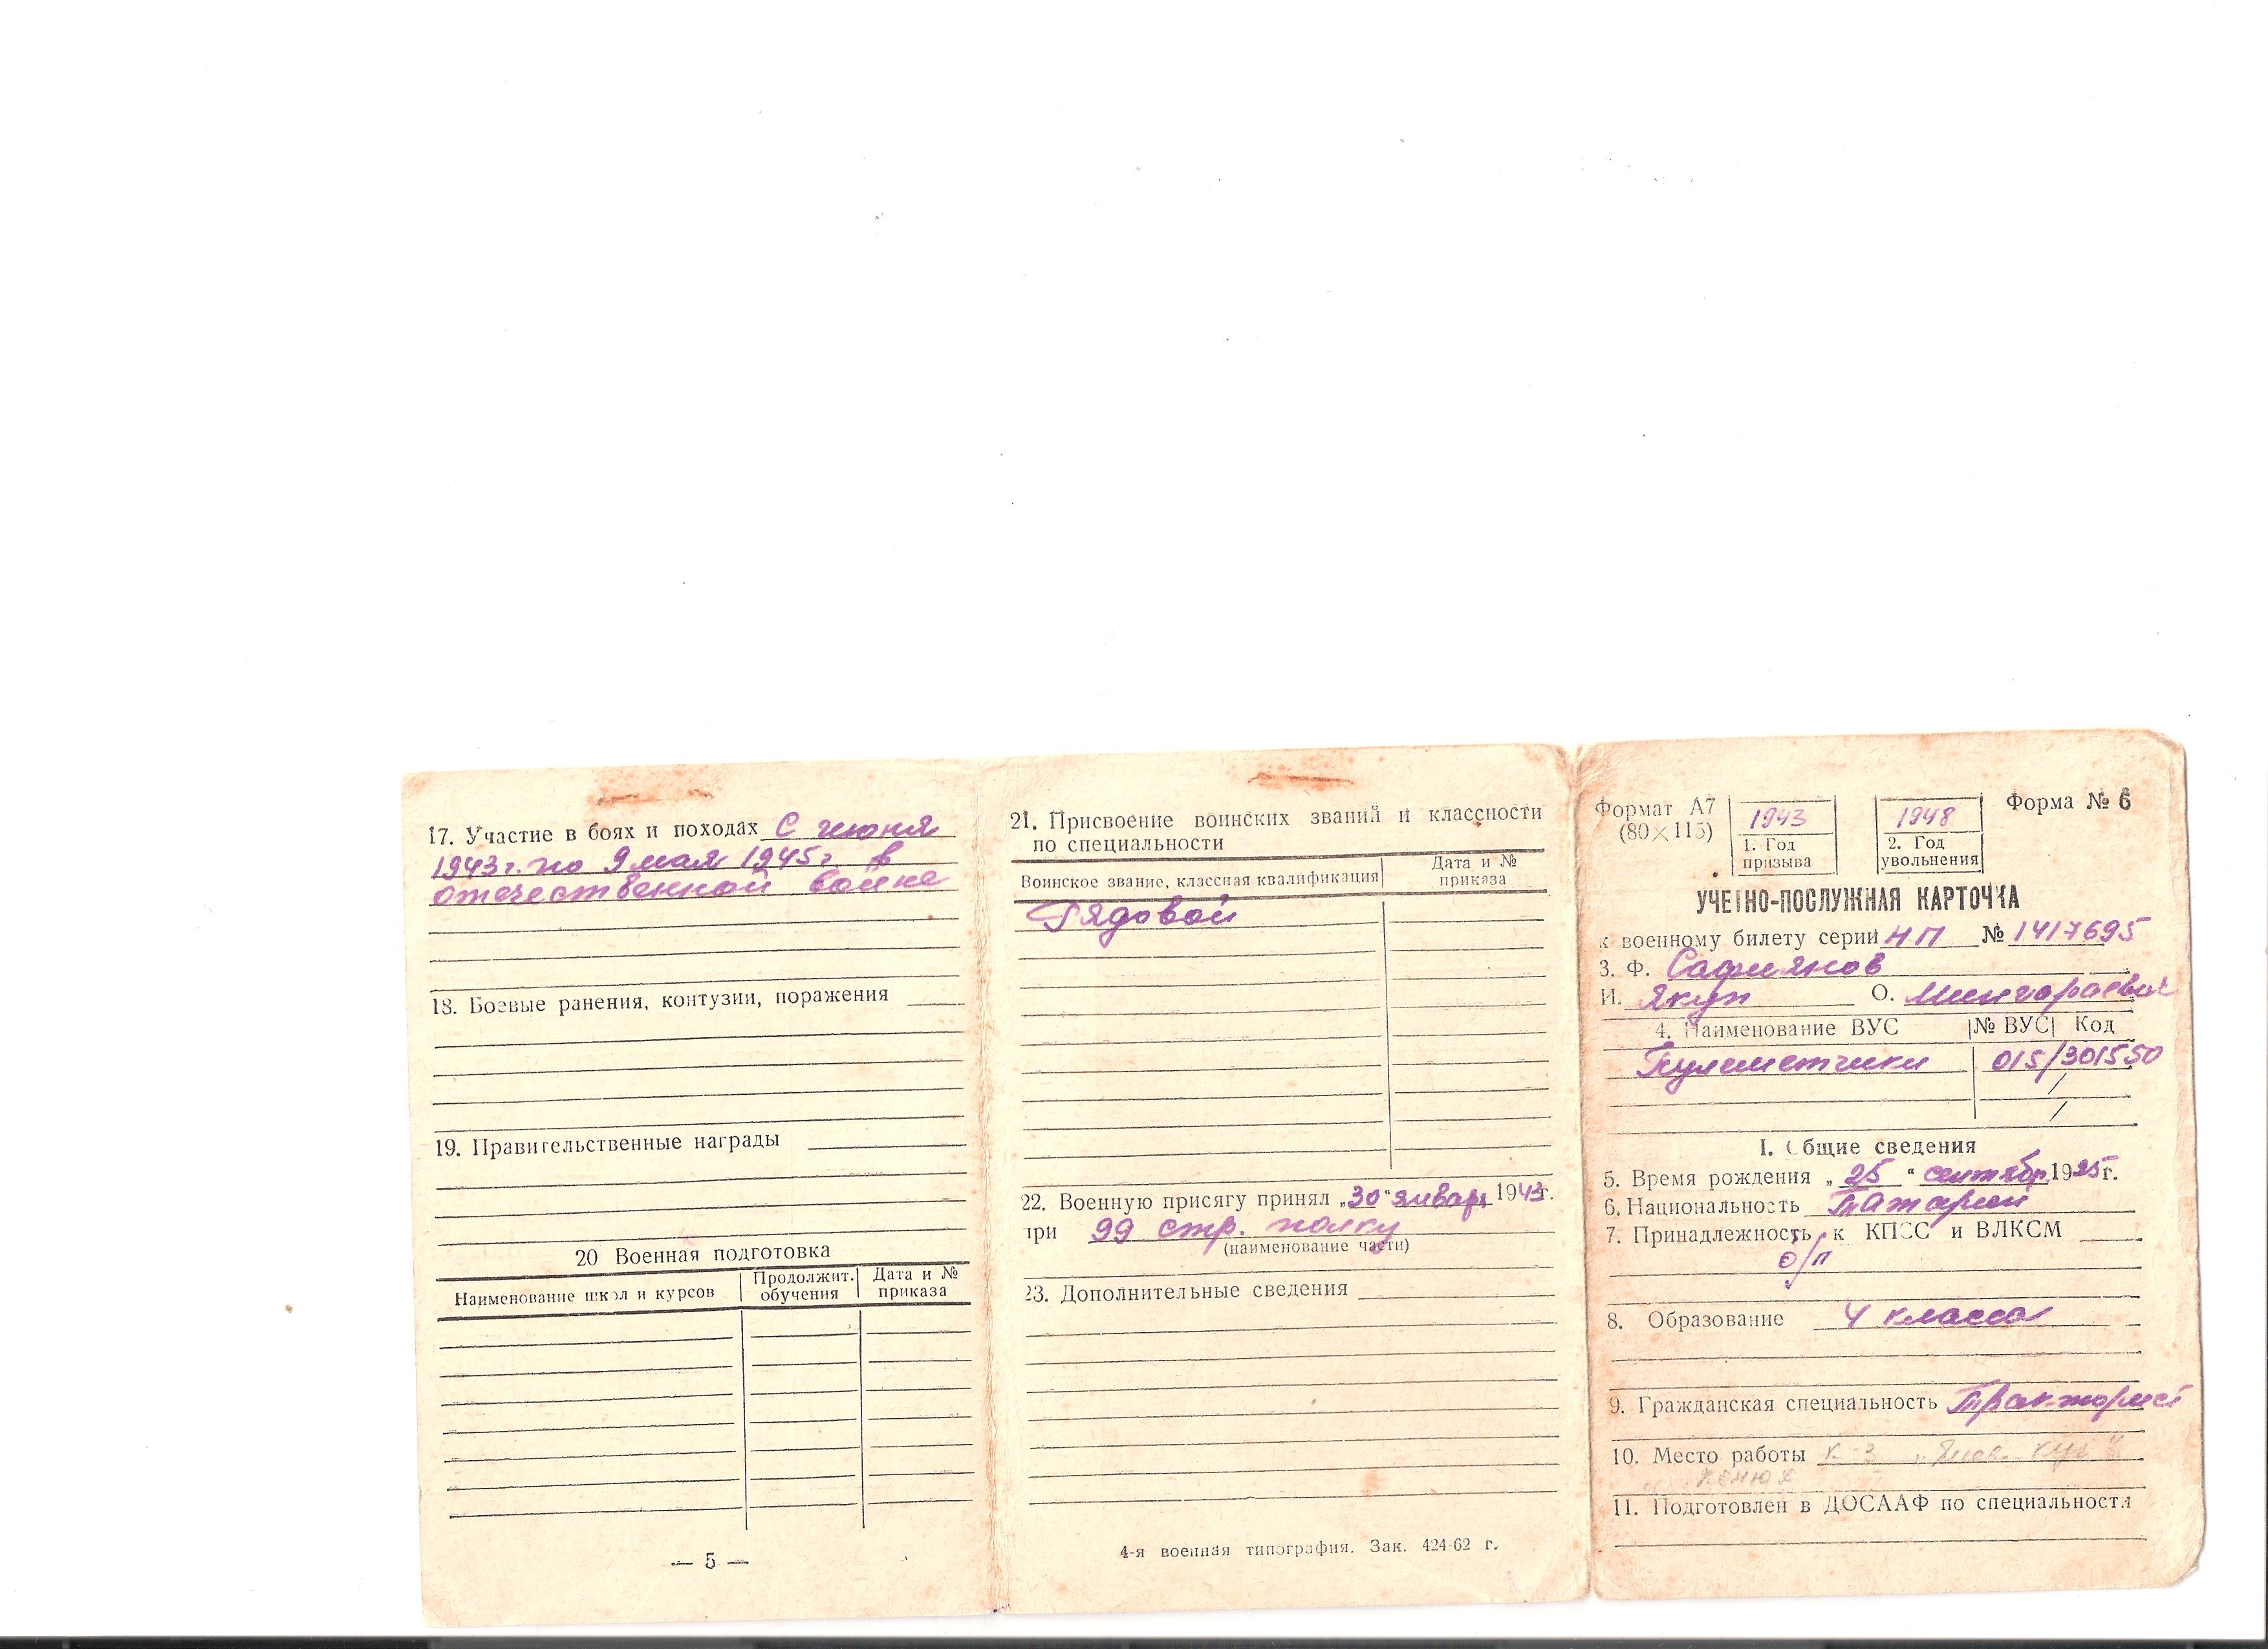 17. Участие в боях и походах С июня
1943 г. по 9 мая 1945 г. в
отечественной войне
18. Боевые ранения, контузии, поражения
19. Правительственные награды
20 Военная подготовка
Наименование школ и курсов | Продолжит. обучения | Дата и № приказа
— 5 —
21. Присвоение воинских званий и классности
по специальности
Воинское звание, классная квалификация | Дата и № приказа
Рядовой
22. Военную присягу принял „30“ январ 1943 г.
при 99 стр. полку
(наименование части)
23. Дополнительные сведения
4-я военная типография. Зак. 424-62 г.
Формат А7
(80×115)
1943
1. Год
призыва
1948
2. Год
увольнения
Форма № 6
УЧЕТНО-ПОСЛУЖНАЯ КАРТОЧКА
к военному билету серии НП № 1417695
3. Ф. Сафиянов
И. Якуп О. Мингараевич
4. Наименование ВУС | № ВУС | Код
Пулеметчики 015/301550
/
/
I. Общие сведения
5. Время рождения „25“ сентябр 1925 г.
6. Национальность Татарин
7. Принадлежность к КПСС и ВЛКСМ
б/п
8. Образование 4 класса
9. Гражданская специальность Тракторист
10. Место работы к-з
конюх
11. Подготовлен в ДОСААФ по специальности